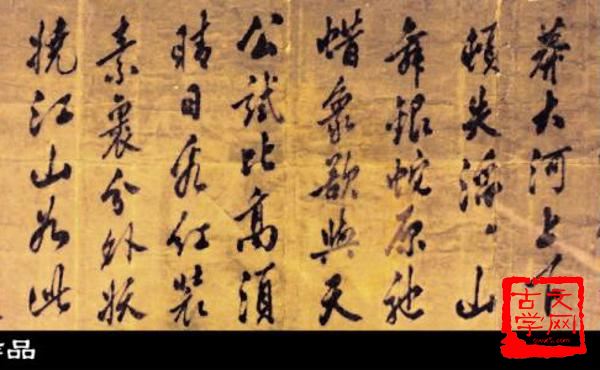 莽大河上下
頓失滔、山
舞銀蛇原馳
蜡象欲與天
公試比高須
晴日看红裝
素裹分外妖
娆江山如此
品
古文学网